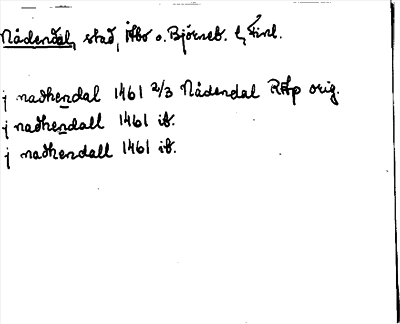 Nådendal, stad, Åbo o. Björneb. l, Finl.
j nadhendal 1461 2/3 Nådendal RAp orig.
j nadhendall 1461 ib.
j nadhendall 1461 ib.